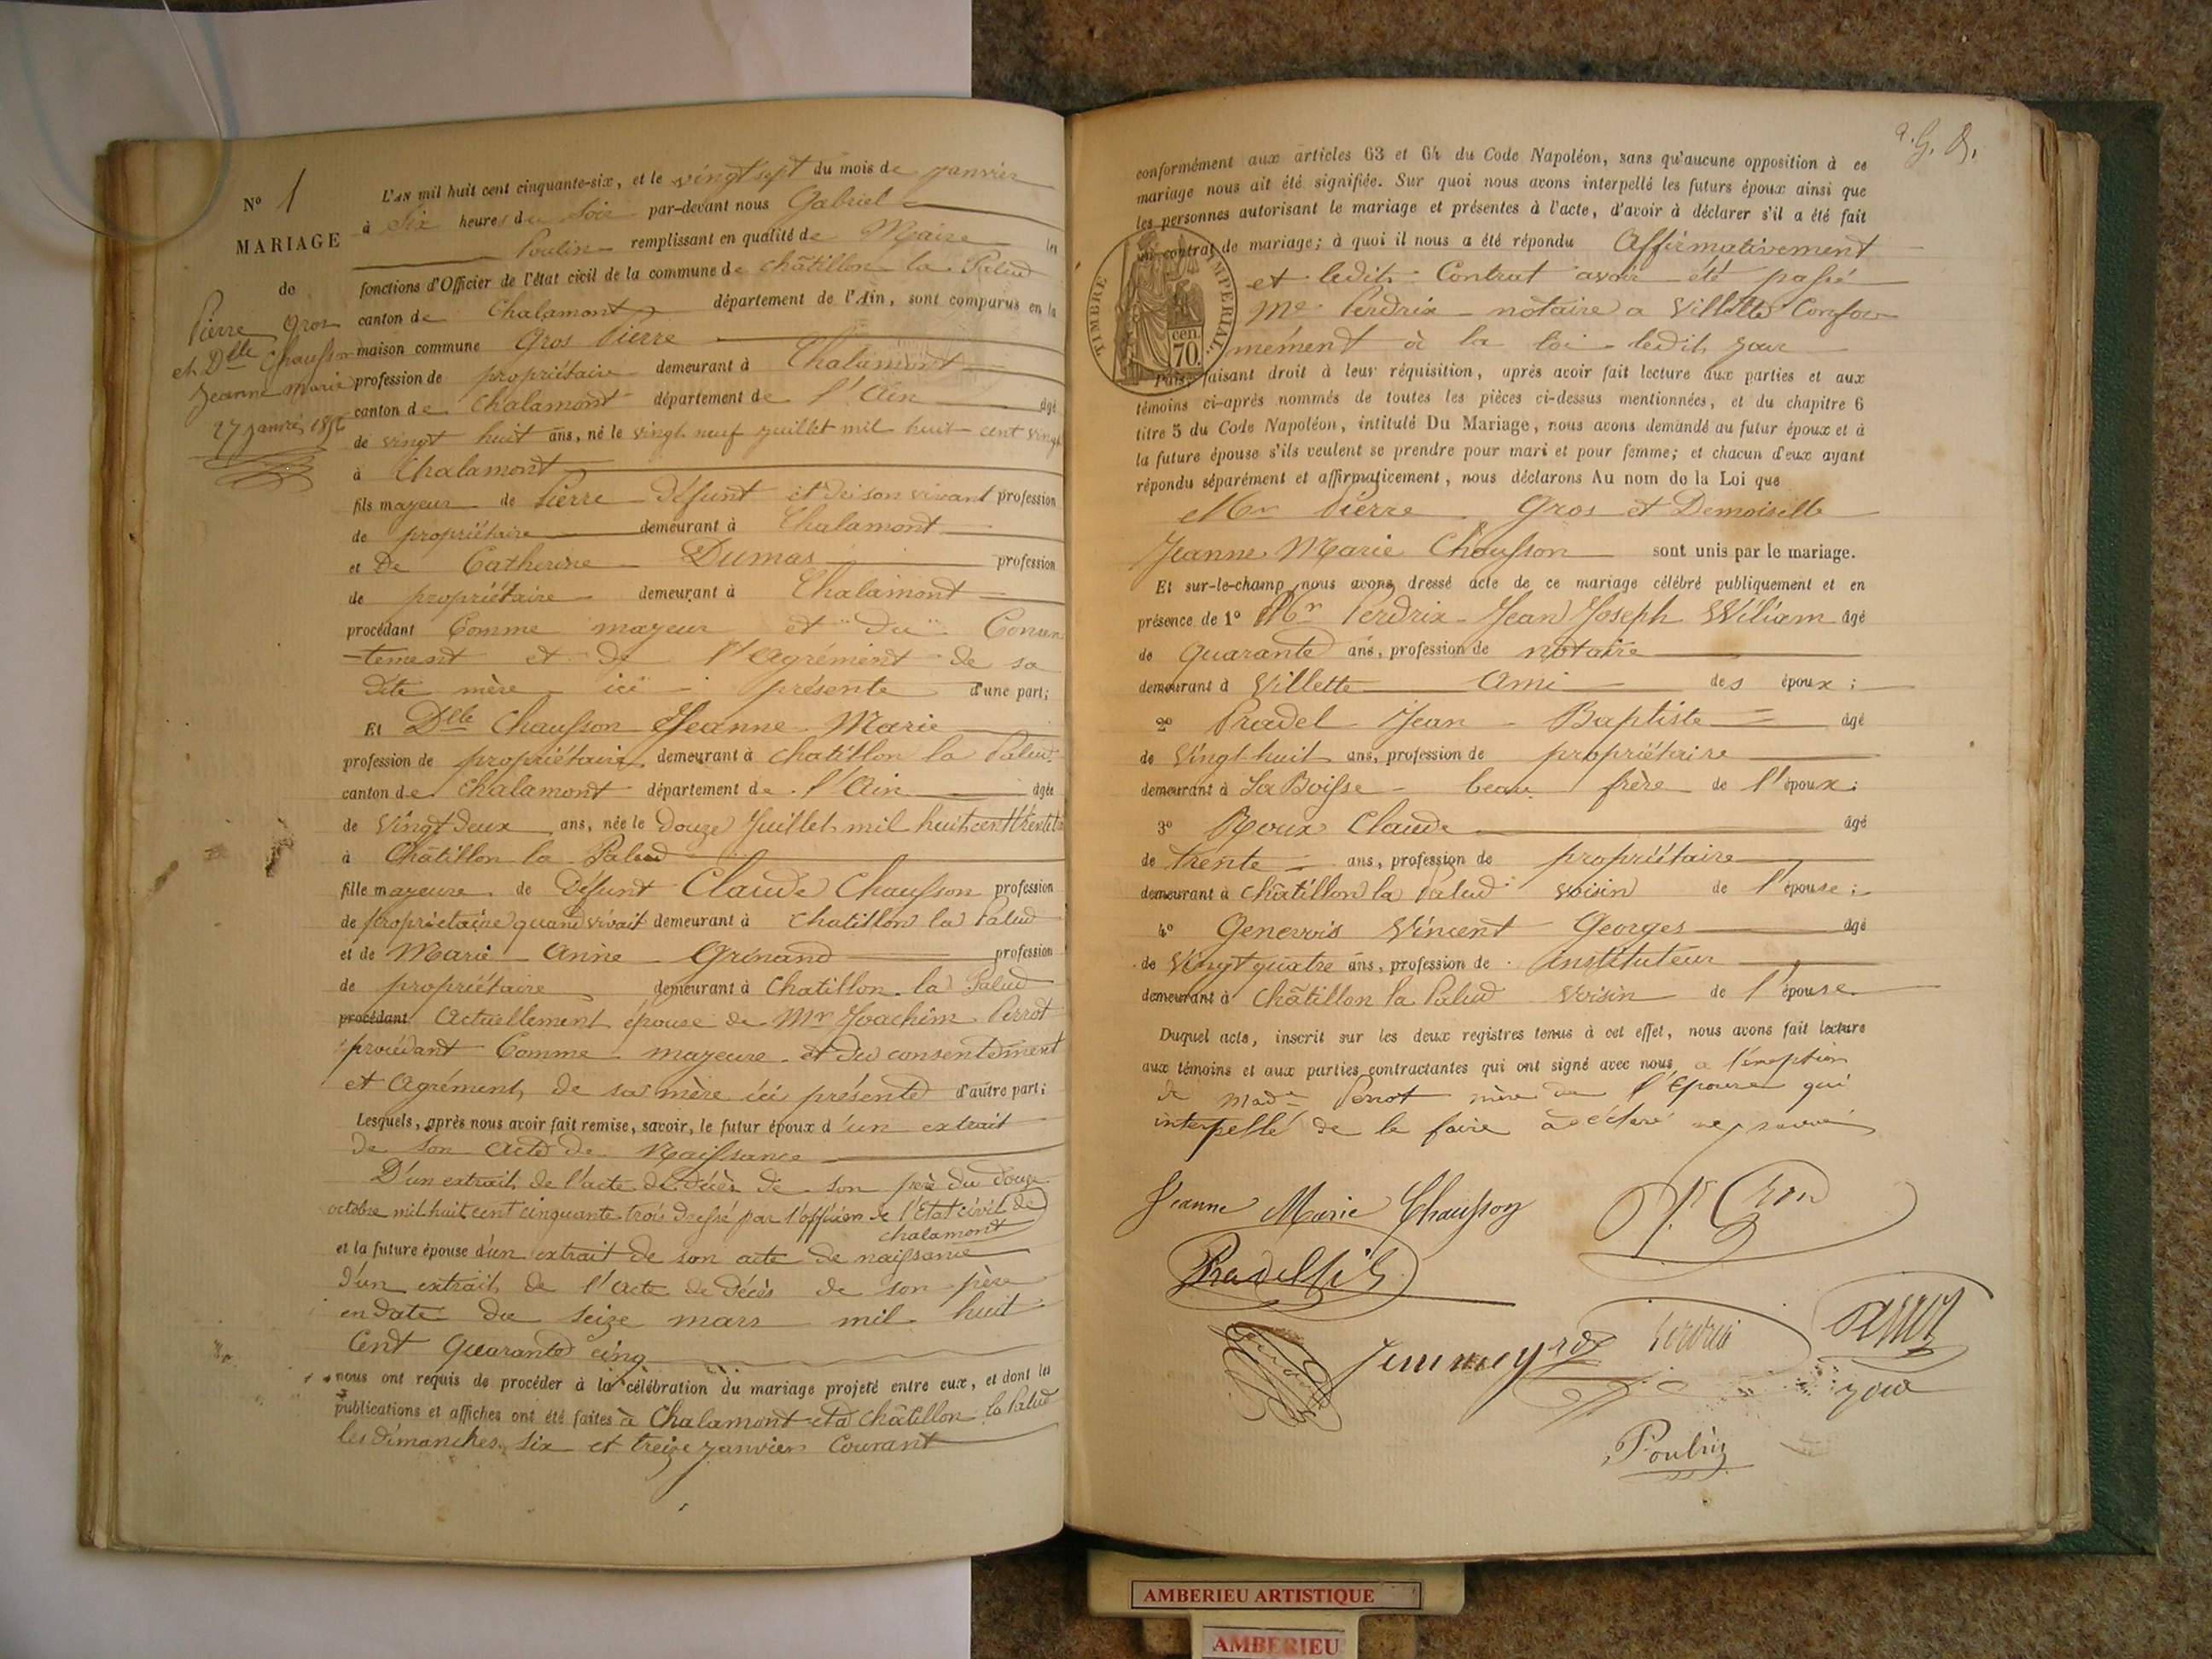 N° 1
MARIAGE
de
Pierre Gros
et Dlle Chausson
Jeanne Marie
27 janvier 1856
L'AN mil huit cent cinquante-six, et le vingt sept du mois de janvier
à Six heures du Soir par-devant nous Gabriel
Poulin remplissant en qualité de Maire les
fonctions d'Officier de l'état civil de la commune de châtillon la Palud
canton de Chalamont département de l'Ain, sont comparus en la
maison commune Gros Pierre
profession de propriétaire demeurant à Chalamont
canton de Chalamont département de l'Ain âgé
de vingt huit ans, né le vingt neuf juillet mil huit cent vingt
à Chalamont
fils mayeur de Pierre Défunt et de son vivant profession
de propriétaire demeurant à Chalamont
et De Catherine Dumas profession
de propriétaire demeurant à Chalamont
procédant Comme mayeur et du Consen
-tement et de l'Agrément de sa
dite mère ici présente d'une part;
Et Dlle Chausson Jeanne Marie
profession de propriétaire demeurant à chatillon la Palud
canton de Chalamont département de l'Ain âgée
de Vingt Deux ans, née le Douze Juillet mil huit cent trente
à Châtillon la Palud
fille mayeure de Défunt Claude Chausson profession
de propriétaire quand vivait demeurant à Chatillon la Palud
et de Marie Anne Grinand profession
de propriétaire demeurant à Chatillon la Palud
procédant Actuellement épouse de Mr Joachim Perrot
procédant Comme mayeure et du consentement
et Agrément de sa mère ici présente d'autre part;
Lesquels, après nous avoir fait remise, savoir, le futur époux d'un extrait
de son acte de Naissance
D'un extrait de l'acte de décès de son père du douze
octobre mil huit cent cinquante trois dressé par l'officier de l'Etat civil de
chalamont
et la future épouse d'un extrait de son acte de naissance
d'un extrait de l'acte de Décès de son père
en date du seize mars mil huit
Cent Quarante cinq
nous ont requis de procéder à la célébration du mariage projeté entre eux, et dont les
publications et affiches ont été faites à Chalamont et à Châtillon la Palud
les dimanches six et treize janvier Courant
conformément aux articles 63 et 64 du Code Napoléon, sans qu'aucune opposition à ce
mariage nous ait été signifiée. Sur quoi nous avons interpellé les futurs époux ainsi que
les personnes autorisant le mariage et présentes à l'acte, d'avoir à déclarer s'il a été fait
un contrat de mariage; à quoi il nous a été répondu Affirmativement
et ledit Contrat avoir été passé
Me Perdrix notaire a Villette Confor
mément à la loi ledit jour
TIMBRE IMPERIAL.
cen.
70.
Puis, faisant droit à leur réquisition, après avoir fait lecture aux parties et aux
témoins ci-après nommés de toutes les pièces ci-dessus mentionnées, et du chapitre 6
titre 5 du Code Napoléon, intitulé Du Mariage, nous avons demandé au futur époux et à
la future épouse s'ils veulent se prendre pour mari et pour femme; et chacun d'eux ayant
répondu séparément et affirmativement, nous déclarons Au nom de la Loi que
Mr Pierre Gros et Demoiselle
Jeanne Marie Chausson sont unis par le mariage.
Et sur-le-champ nous avons dressé acte de ce mariage célébré publiquement et en
présence de 1° Mr Perdrix Jean Joseph Wiliam âgé
de Quarante ans, profession de notaire
demeurant à Villette Ami des époux;
2° Pradel Jean Baptiste âgé
de Vingt huit ans, profession de propriétaire
demeurant à La Boisse beau frère de l'époux;
3° Roux Claude âgé
de trente ans, profession de propriétaire
demeurant à châtillon la Palud voisin de l'épouse;
4° Genevois Vincent Georges âgé
de Vingt quatre ans, profession de instituteur
demeurant à châtillon la Palud Voisin de l'épouse.
Duquel acte, inscrit sur les deux registres tenus à cet effet, nous avons fait lecture
aux témoins et aux parties contractantes qui ont signé avec nous a l'exeption
de made Perrot mère de l'épouse qui
interpellé de le faire a déclaré ne savoir
Jeanne Marie Chausson
Pradel fils
Perdrix
Poulin
AMBERIEU ARTISTIQUE
AMBERIEU